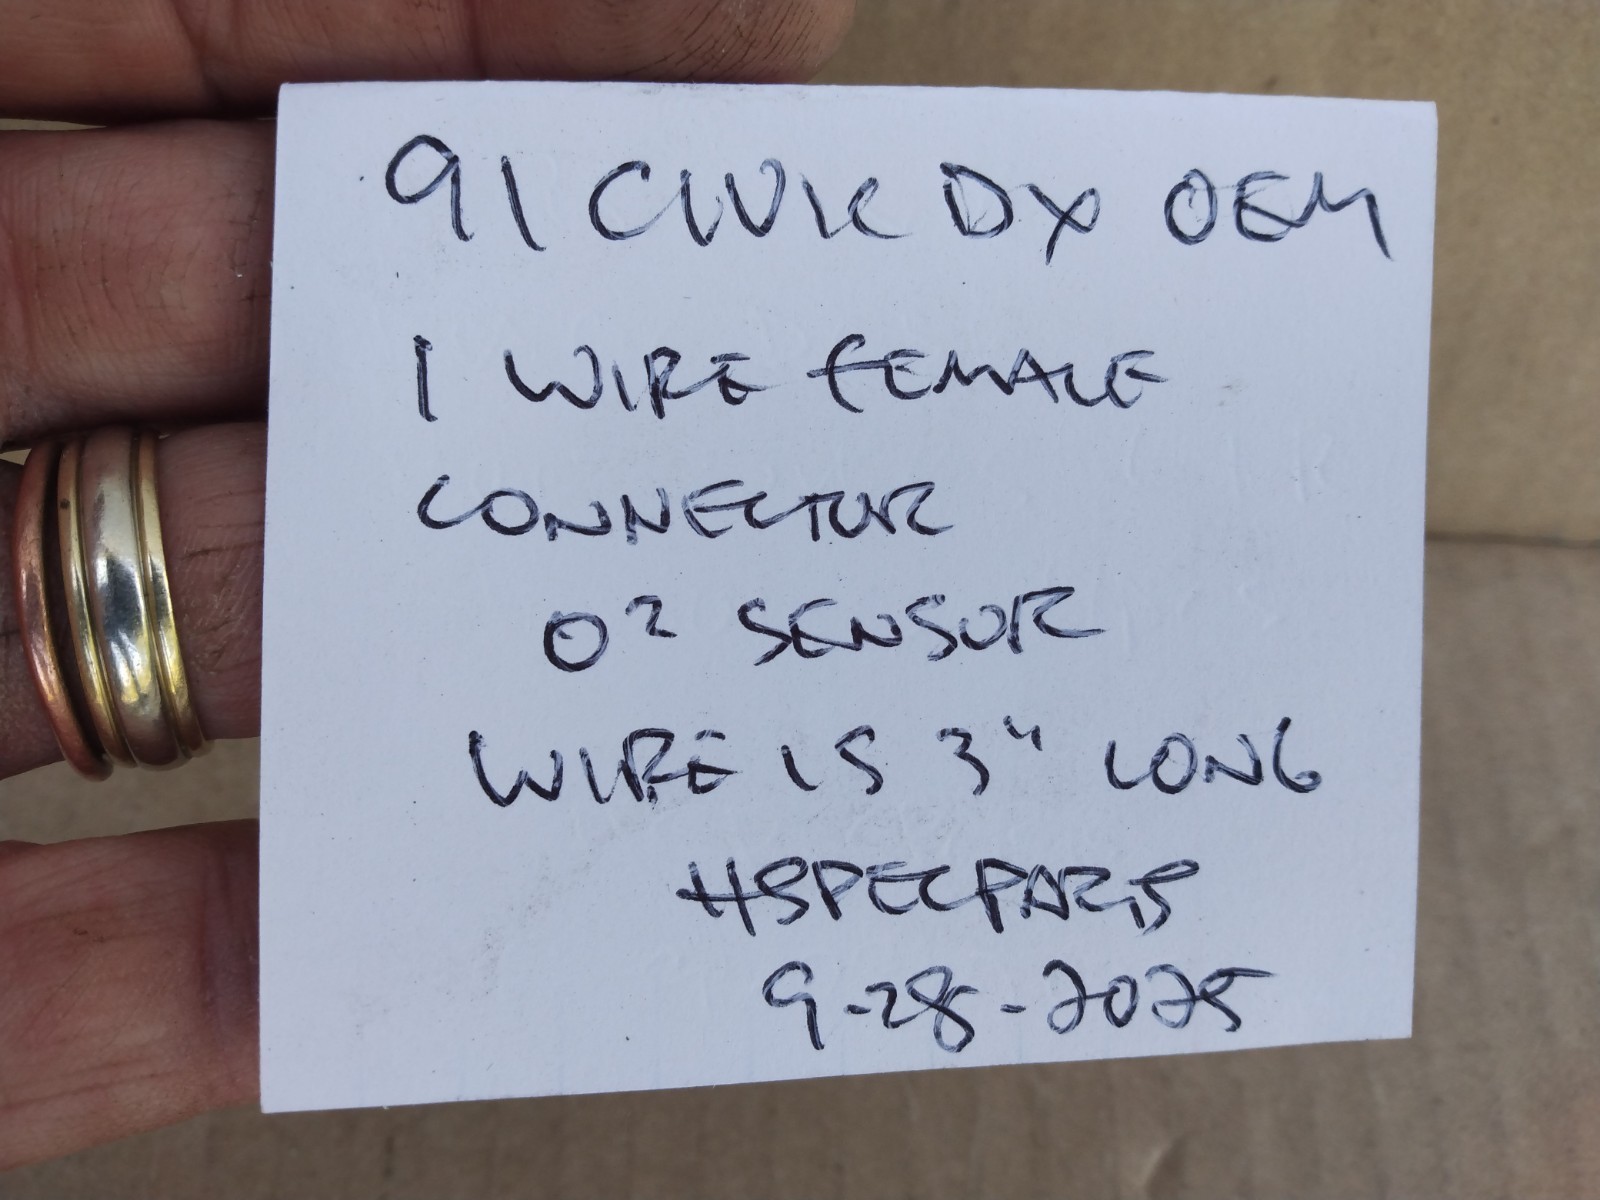 91 CIVIC DX OEM
1 WIRE FEMALE
CONNECTOR
O2 SENSOR
WIRE IS 3" LONG
HSPECPARTS
9-28-2025